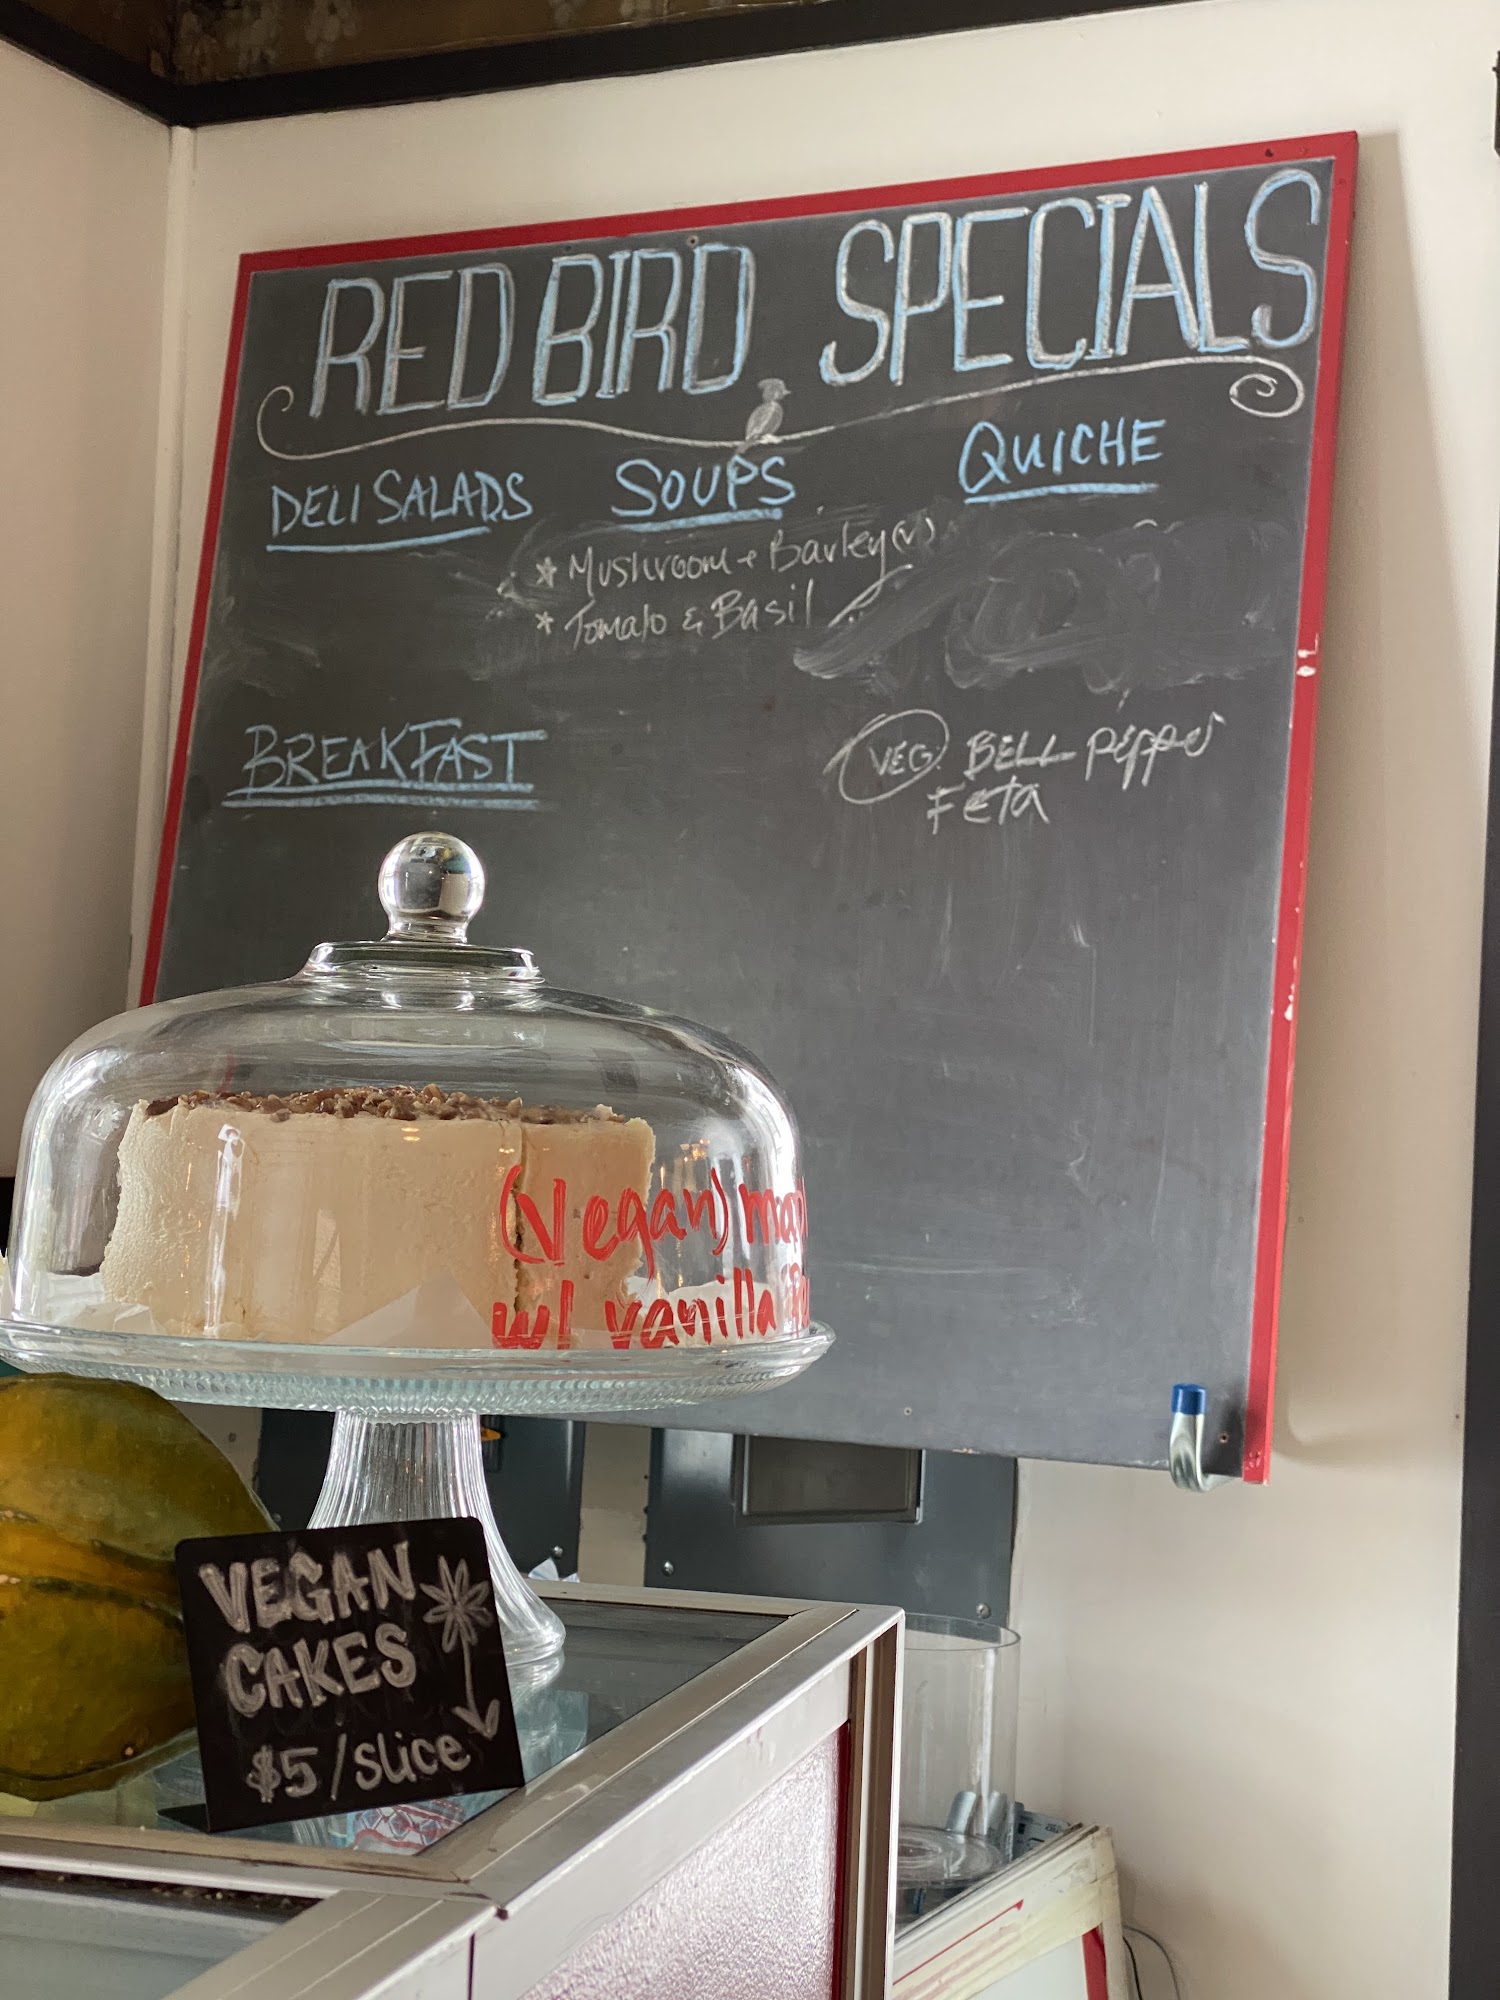 RED BIRD SPECIALS
DELI SALADS
SOUPS
QUICHE
* Mushroom + Barley (v)
* Tomato & Basil
BREAKFAST
VEG. BELL Pepper
Feta
(Vegan)
w/ vanilla
VEGAN
CAKES
$5/slice